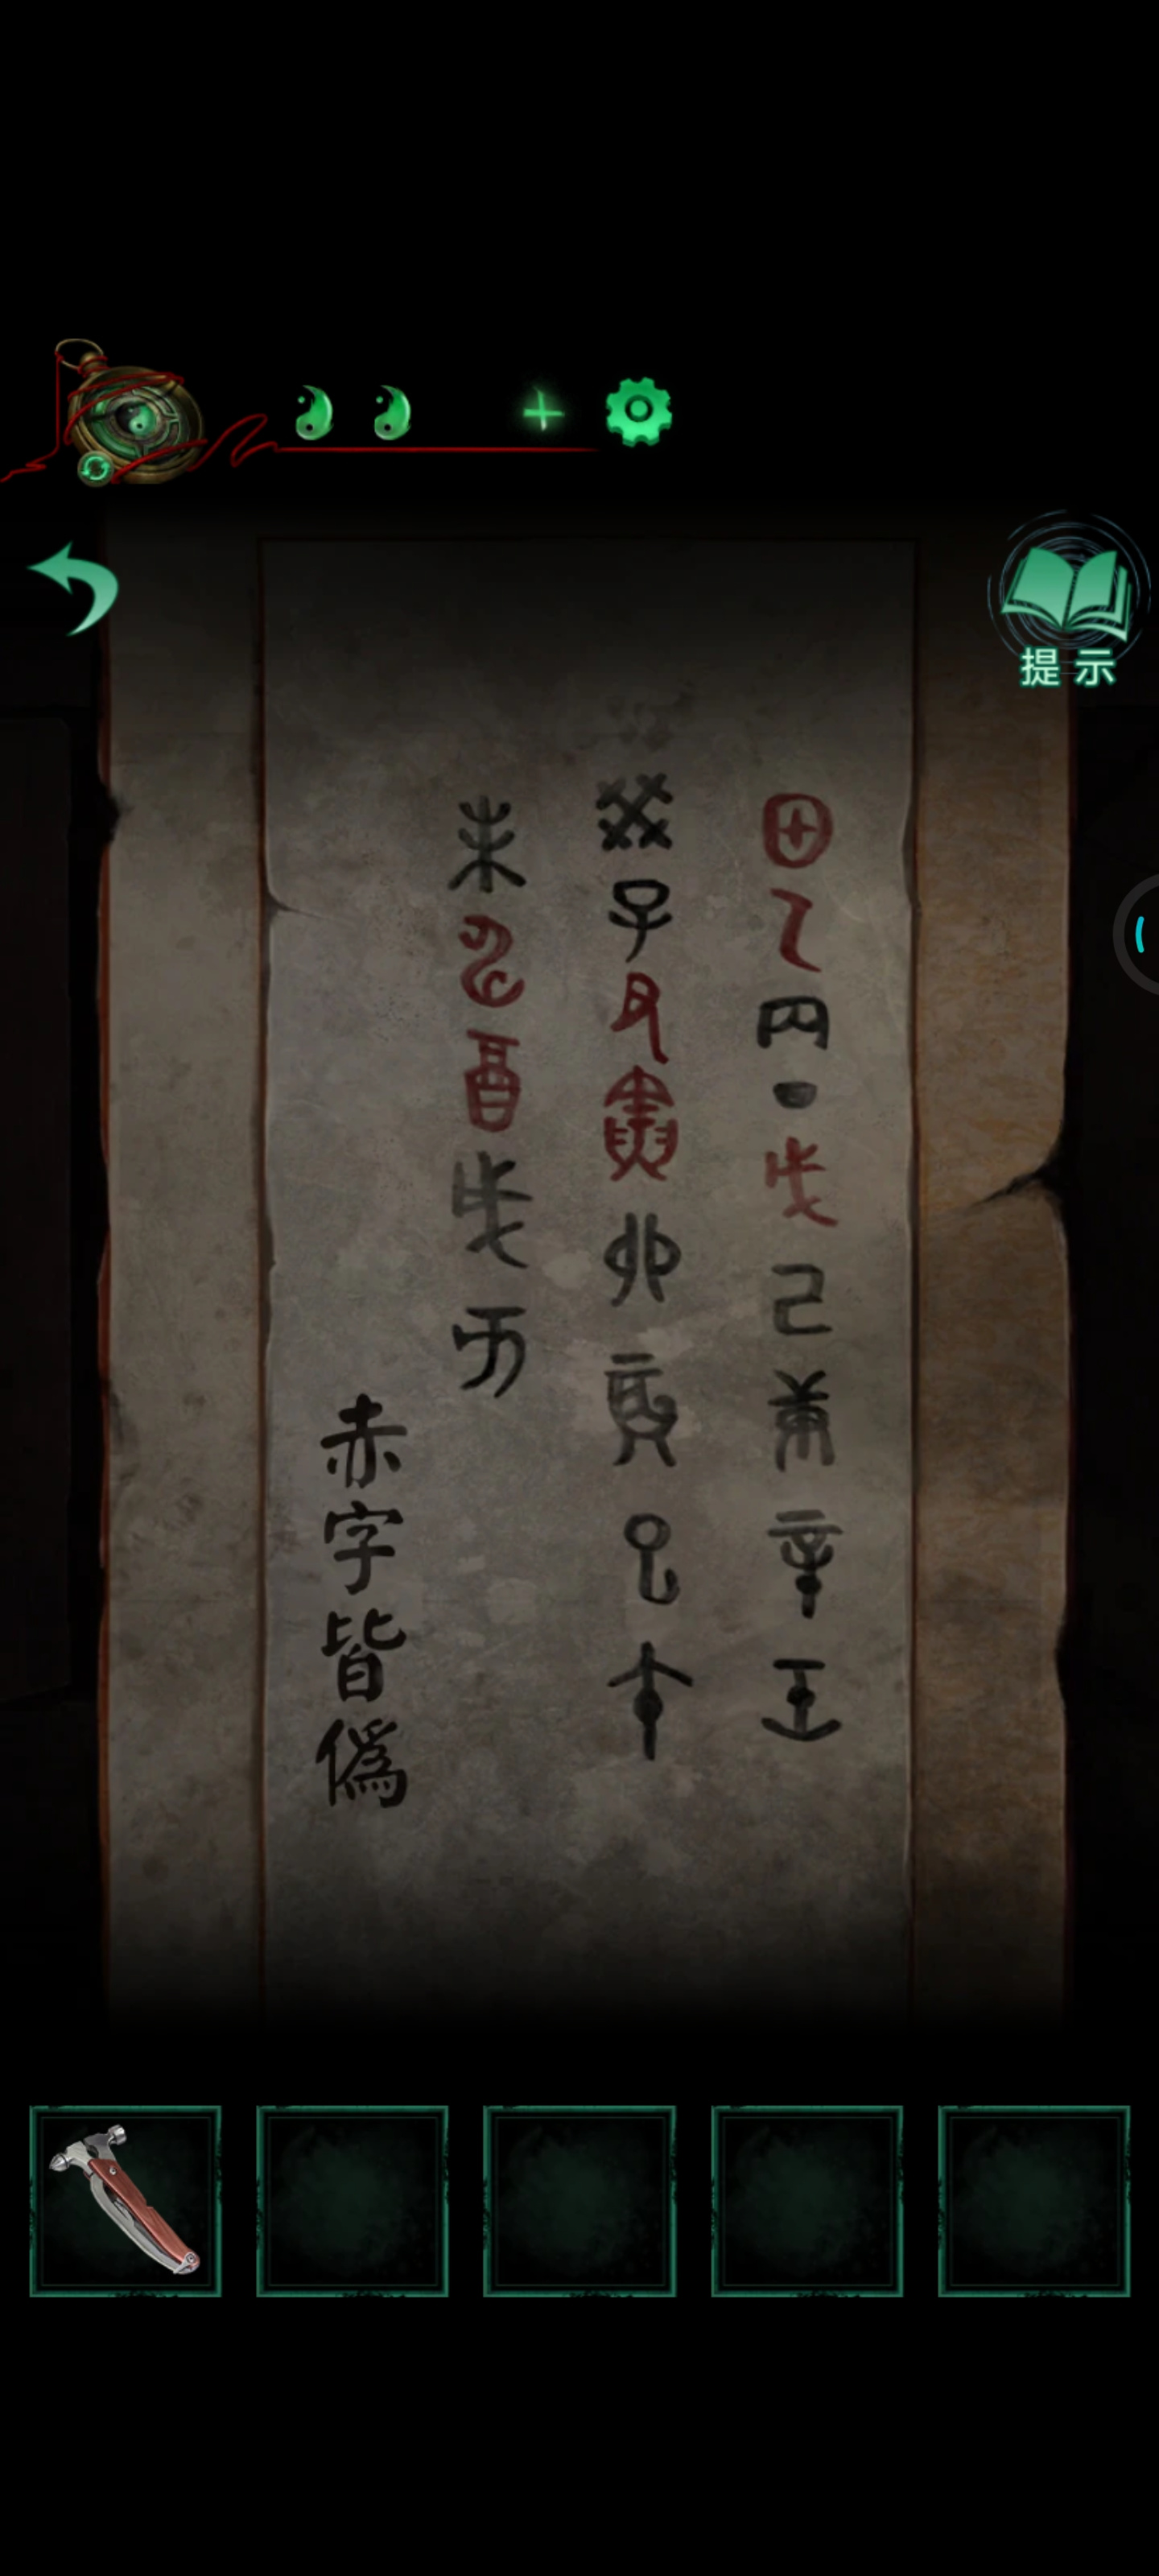 提示
甲乙丙丁戊己庚辛壬
癸子丑寅卯辰巳午
未申酉戌亥
赤字皆僞